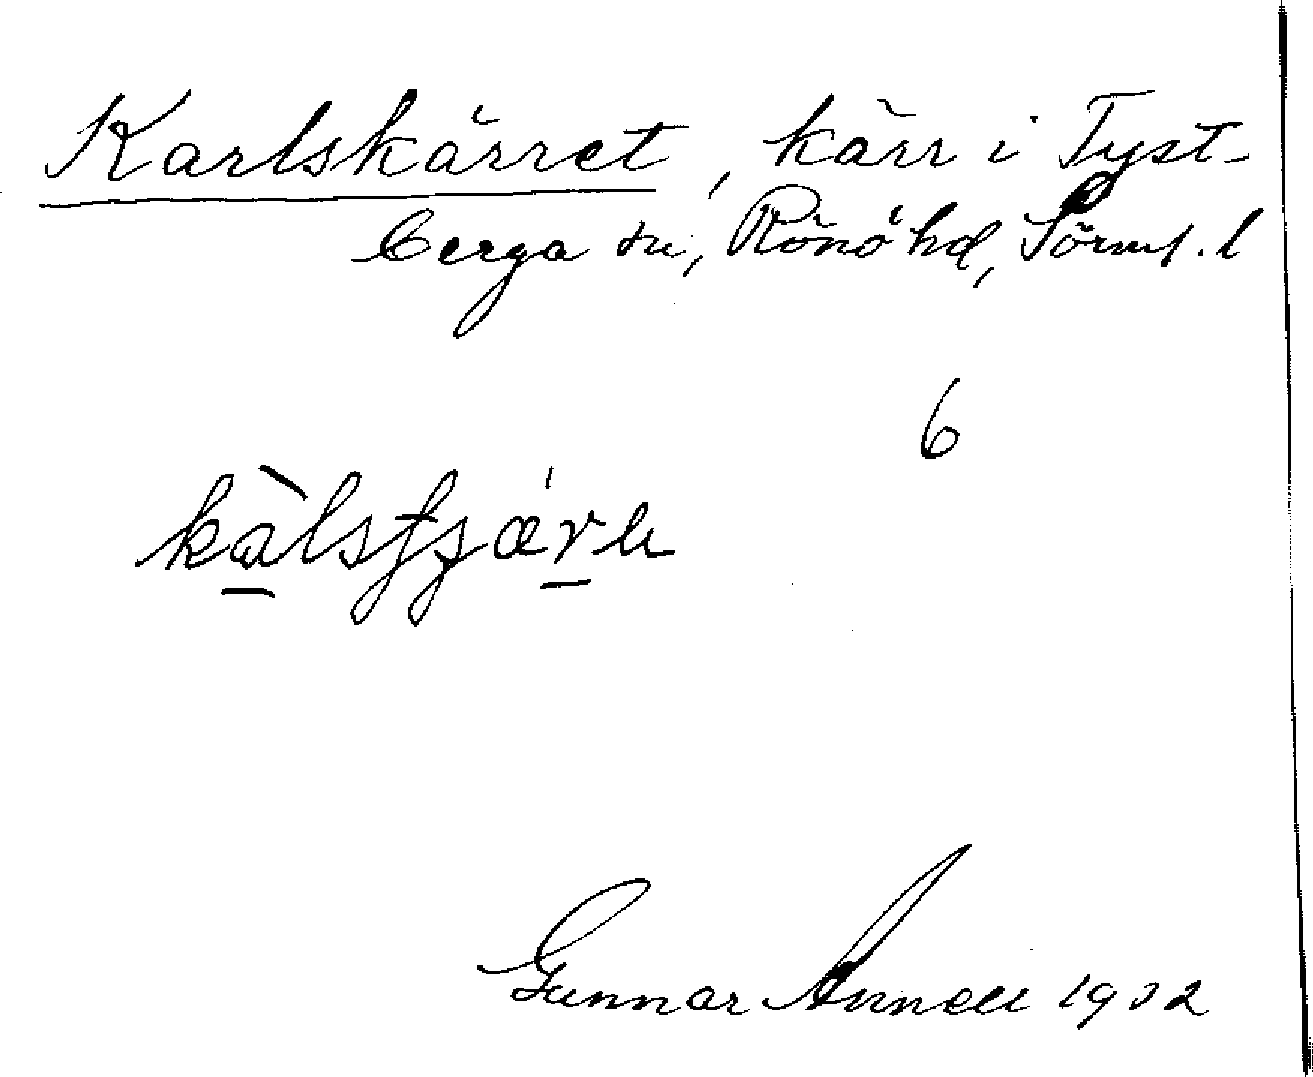 Karlskärret, kärr i Tyst-
berga sn, Rönö hd, Sörml. l
6
Gunnar Annell 1932